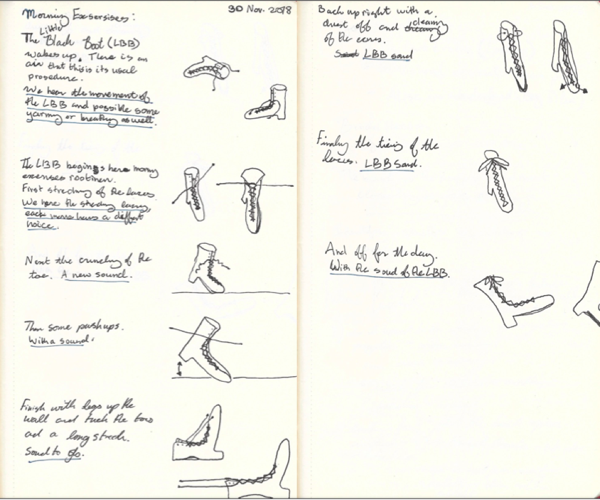 Morning Exsersises:
30 Nov. 2018
The Little Black Boot (LBB)
wakes up. There is an
air that this is its usual
procedure.
We hear the movement of
the LBB and possible some
yarning or breathing as well.
The LBB begins here morny
exersises rootinen.
First streching of the laces.
We here the streching laces,
each move haves a diffrent
noice.
Next the crunching of the
toe. A new sound.
Then some pushups.
With a sound.
Finish with legs up the
wall and tuck the toes
ad a long strech.
Sound to go.
Back up right with a
dust off and cleaning
of the
LBB sound
Finaly the tieing of the
laces. LBB Sound.
And off for the day.
With the soud of the LBB.